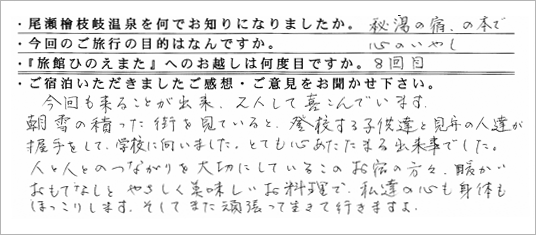 ・尾瀬檜枝岐温泉を何でお知りになりましたか。 秘湯の宿.の本で
・今回のご旅行の目的はなんですか。 心のいやし
・『旅館ひのえまた』へのお越しは何度目ですか。 8回目
・ご宿泊いただきましたご感想・ご意見をお聞かせ下さい。
今回も来ることが出来、2人して喜こんでいます。
朝雪の積った街を見ていると、登校する子供達と見守の人達が
握手をして、学校に向いました。とても心あたたまる出来事でした。
人と人とのつながりを大切にしているこのお宿の方々、暖かい
おもてなしと やさしく美味しいお料理で、私達の心も身体も
ほっこりします。そしてまた頑張って生きて行きますよ.